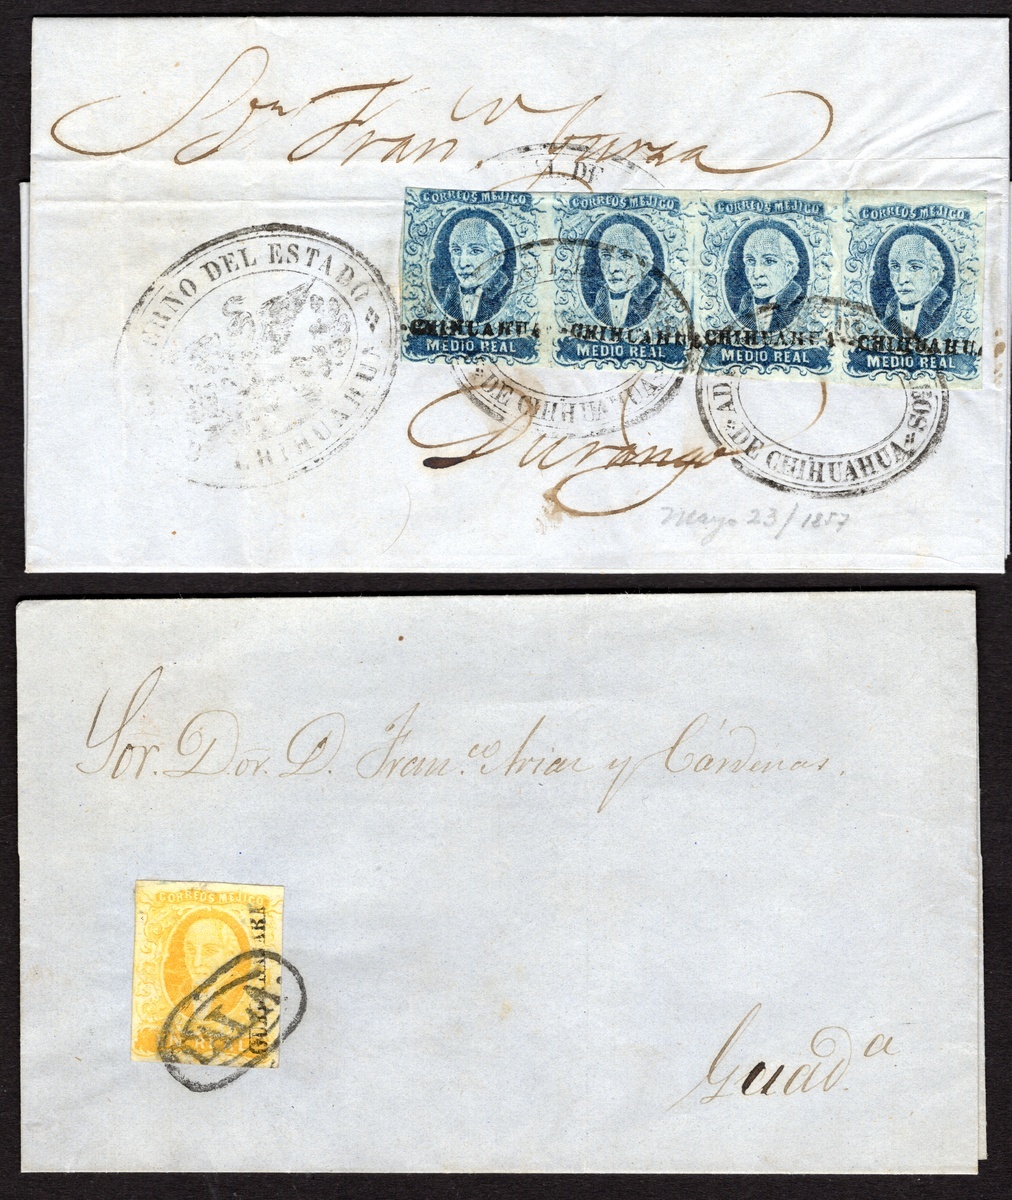 Sr Dn Fran.co Zuraa
A. DE
CORREOS MEJICO CORREOS MEJICO CORREOS MEJICO CORREOS MEJICO
CHIHUAHUA CHIHUAHUA CHIHUAHUA CHIHUAHUA
MEDIO REAL MEDIO REAL MEDIO REAL MEDIO REAL
ERNO DEL ESTADO
CHIHUAHUA
DE CHIHUAHUA
DE CHIHUAHUA
Durango
Mayo 23/1857
Sor. Dor. D. Fran.co Arias y Cárdenas.
CORREOS MEJICO
UN REAL
TALA.
Guad.a